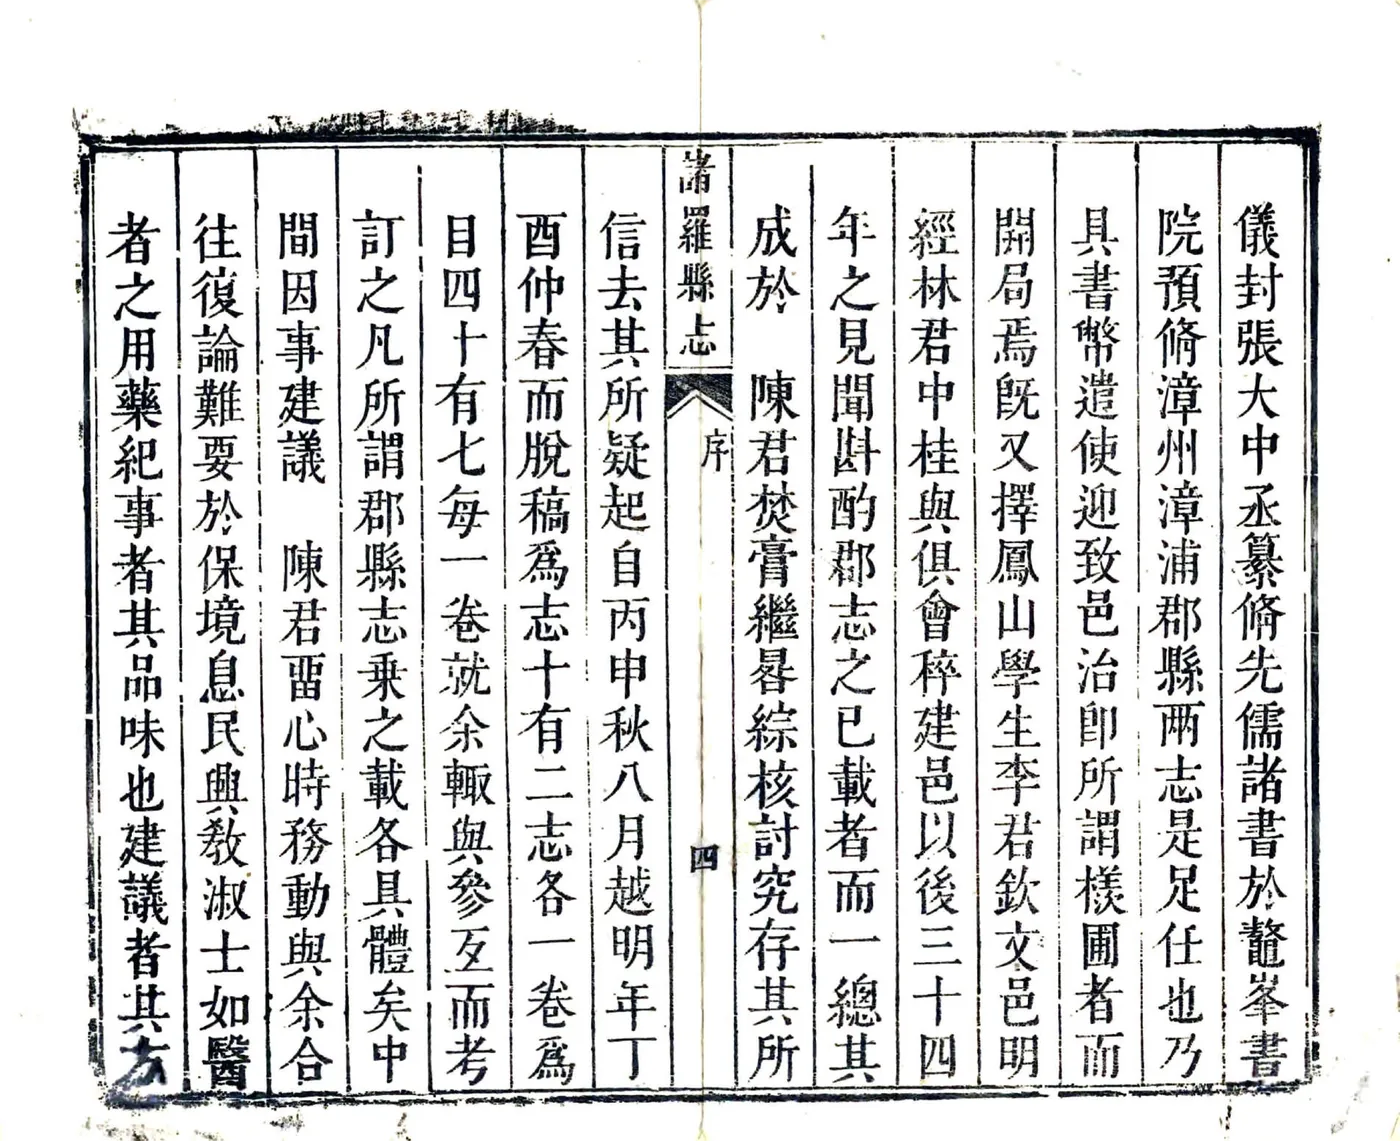 儀封張大中丞纂脩先儒諸書於鼇峯書
院預脩漳州漳浦郡縣兩志是足任也乃
具書幣遣使迎致邑治卽所謂檨圃者而
開局焉旣又擇鳳山學生李君欽文邑明
經林君中桂與俱會稡建邑以後三十四
年之見聞斟酌郡志之已載者而一總其
成於　陳君焚膏繼晷綜核討究存其所
諸羅縣志
序
四
信去其所疑起自丙申秋八月越明年丁
酉仲春而脫稿爲志十有二志各一卷爲
目四十有七每一卷就余輙與參互而考
訂之凡所謂郡縣志乗之載各具體矣中
間因事建議　陳君畱心時務動與余合
往復論難要於保境息民興敎淑士如醫
者之用藥紀事者其品味也建議者其方